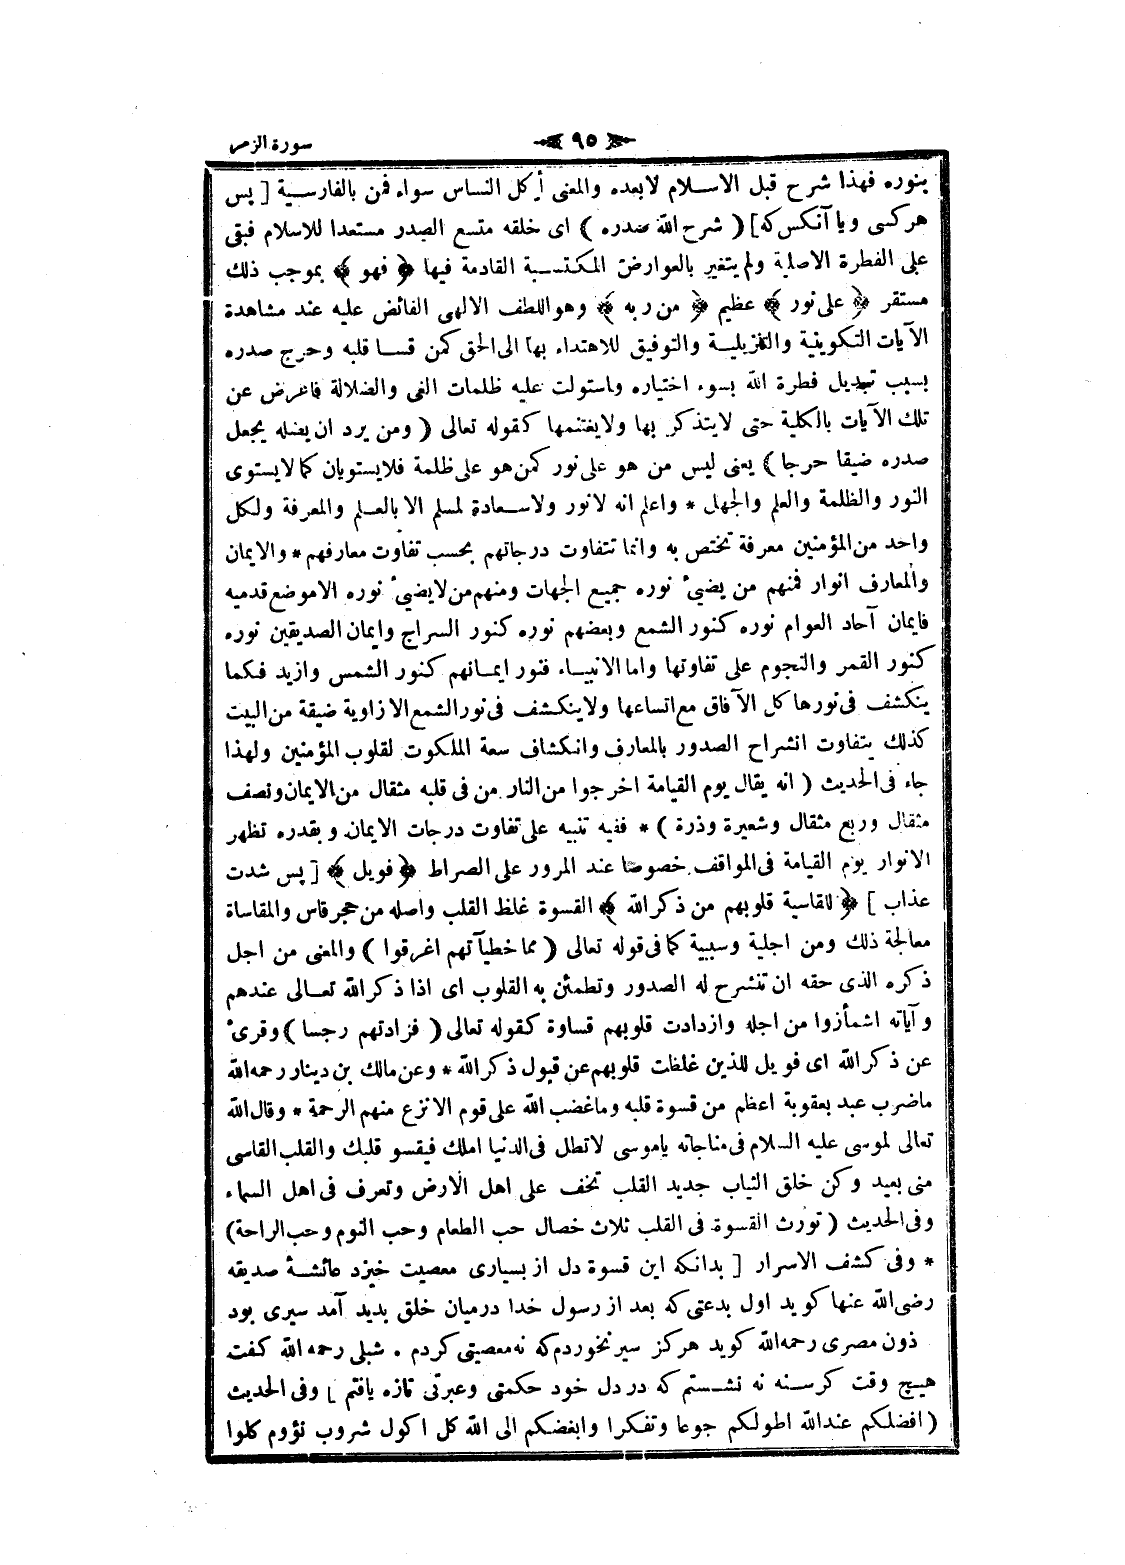 سورة الزمر ٩٥
بنوره فهذا شرح قبل الاسلام لابعده والمعنى أكل الناس سواء فمن بالفارسية [ پس
هر كسى ويا آنكس كه ] ( شرح الله صدره ) اى خلقه متسع الصدر مستعدا للاسلام فبقى
على الفطرة الاصلية ولم يتغير بالعوارض المكتسبة القادمة فيها ﴿ فهو ﴾ بموجب ذلك
مستقر ﴿ على نور ﴾ عظيم ﴿ من ربه ﴾ وهو اللطف الالهى الفائض عليه عند مشاهدة
الآيات التكوينية والتنزيلية والتوفيق للاهتداء بها الى الحق كمن قسا قلبه وحرج صدره
بسبب تبديل فطرة الله بسوء اختياره واستولت عليه ظلمات الغى والضلالة فاعرض عن
تلك الآيات بالكلية حتى لايتذكر بها ولايغتنمها كقوله تعالى ( ومن يرد ان يضله يجعل
صدره ضيقا حرجا ) يعنى ليس من هو على نور كمن هو على ظلمة فلايستويان كما لايستوى
النور والظلمة والعلم والجهل * واعلم انه لانور ولاسعادة لمسلم الا بالعلم والمعرفة ولكل
واحد من المؤمنين معرفة تختص به وانما تتفاوت درجاتهم بحسب تفاوت معارفهم * والايمان
والمعارف انوار فمنهم من يضيئ نوره جميع الجهات ومنهم من لايضيئ نوره الاموضع قدميه
فايمان آحاد العوام نوره كنور الشمع وبعضهم نوره كنور السراج وايمان الصديقين نوره
كنور القمر والنجوم على تفاوتها واما الانبياء فنور ايمانهم كنور الشمس وازيد فكما
ينكشف فى نورها كل الآفاق مع اتساعها ولاينكشف فى نور الشمع الا زاوية ضيقة من البيت
كذلك يتفاوت انشراح الصدور بالمعارف وانكشاف سعة الملكوت لقلوب المؤمنين ولهذا
جاء فى الحديث ( انه يقال يوم القيامة اخرجوا من النار من فى قلبه مثقال من الايمان ونصف
مثقال وربع مثقال وشعيرة وذرة ) * ففيه تنبيه على تفاوت درجات الايمان وبقدره تظهر
الانوار يوم القيامة فى المواقف خصوصا عند المرور على الصراط ﴿ فويل ﴾ [ پس شدت
عذاب ] ﴿ للقاسية قلوبهم من ذكر الله ﴾ القسوة غلظ القلب واصله من حجر قاس والمقاساة
معالجة ذلك ومن اجلية وسببية كما فى قوله تعالى ( مما خطيآتهم اغرقوا ) والمعنى من اجل
ذكره الذى حقه ان تنشرح له الصدور وتطمئن به القلوب اى اذا ذكر الله تعالى عندهم
وآياته اشمأزوا من اجله وازدادت قلوبهم قساوة كقوله تعالى ( فزادتهم رجسا ) وقرئ
عن ذكر الله اى فويل للذين غلظت قلوبهم عن قبول ذكر الله * وعن مالك بن دينار رحمه الله
ماضرب عبد بعقوبة اعظم من قسوة قلبه وماغضب الله على قوم الانزع منهم الرحمة * وقال الله
تعالى لموسى عليه السلام فى مناجاته ياموسى لاتطل فى الدنيا املك فيقسو قلبك والقلب القاسى
منى بعيد وكن خلق الثياب جديد القلب تخف على اهل الارض وتعرف فى اهل السماء
وفى الحديث ( تورث القسوة فى القلب ثلاث خصال حب الطعام وحب النوم وحب الراحة)
* وفى كشف الاسرار [ بدانكه اين قسوة دل از بسيارى معصيت خيزد عائشة صديقه
رضى الله عنها كويد اول بدعتى كه بعد از رسول خدا درميان خلق پديد آمد سيرى بود
ذون مصرى رحمه الله كويد هركز سير نخوردم كه نه معصيتى كردم . شبلى رحمه الله كفت
هيچ وقت كرسنه نه نشستم كه در دل خود حكمتى وعبرتى تازه يافتم ] وفى الحديث
( افضلكم عند الله اطولكم جوعا وتفكرا وابغضكم الى الله كل اكول شروب نؤوم كلوا